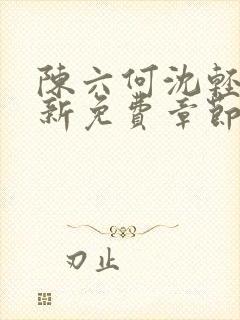 陳六何沈輕
新免費章節
刃止